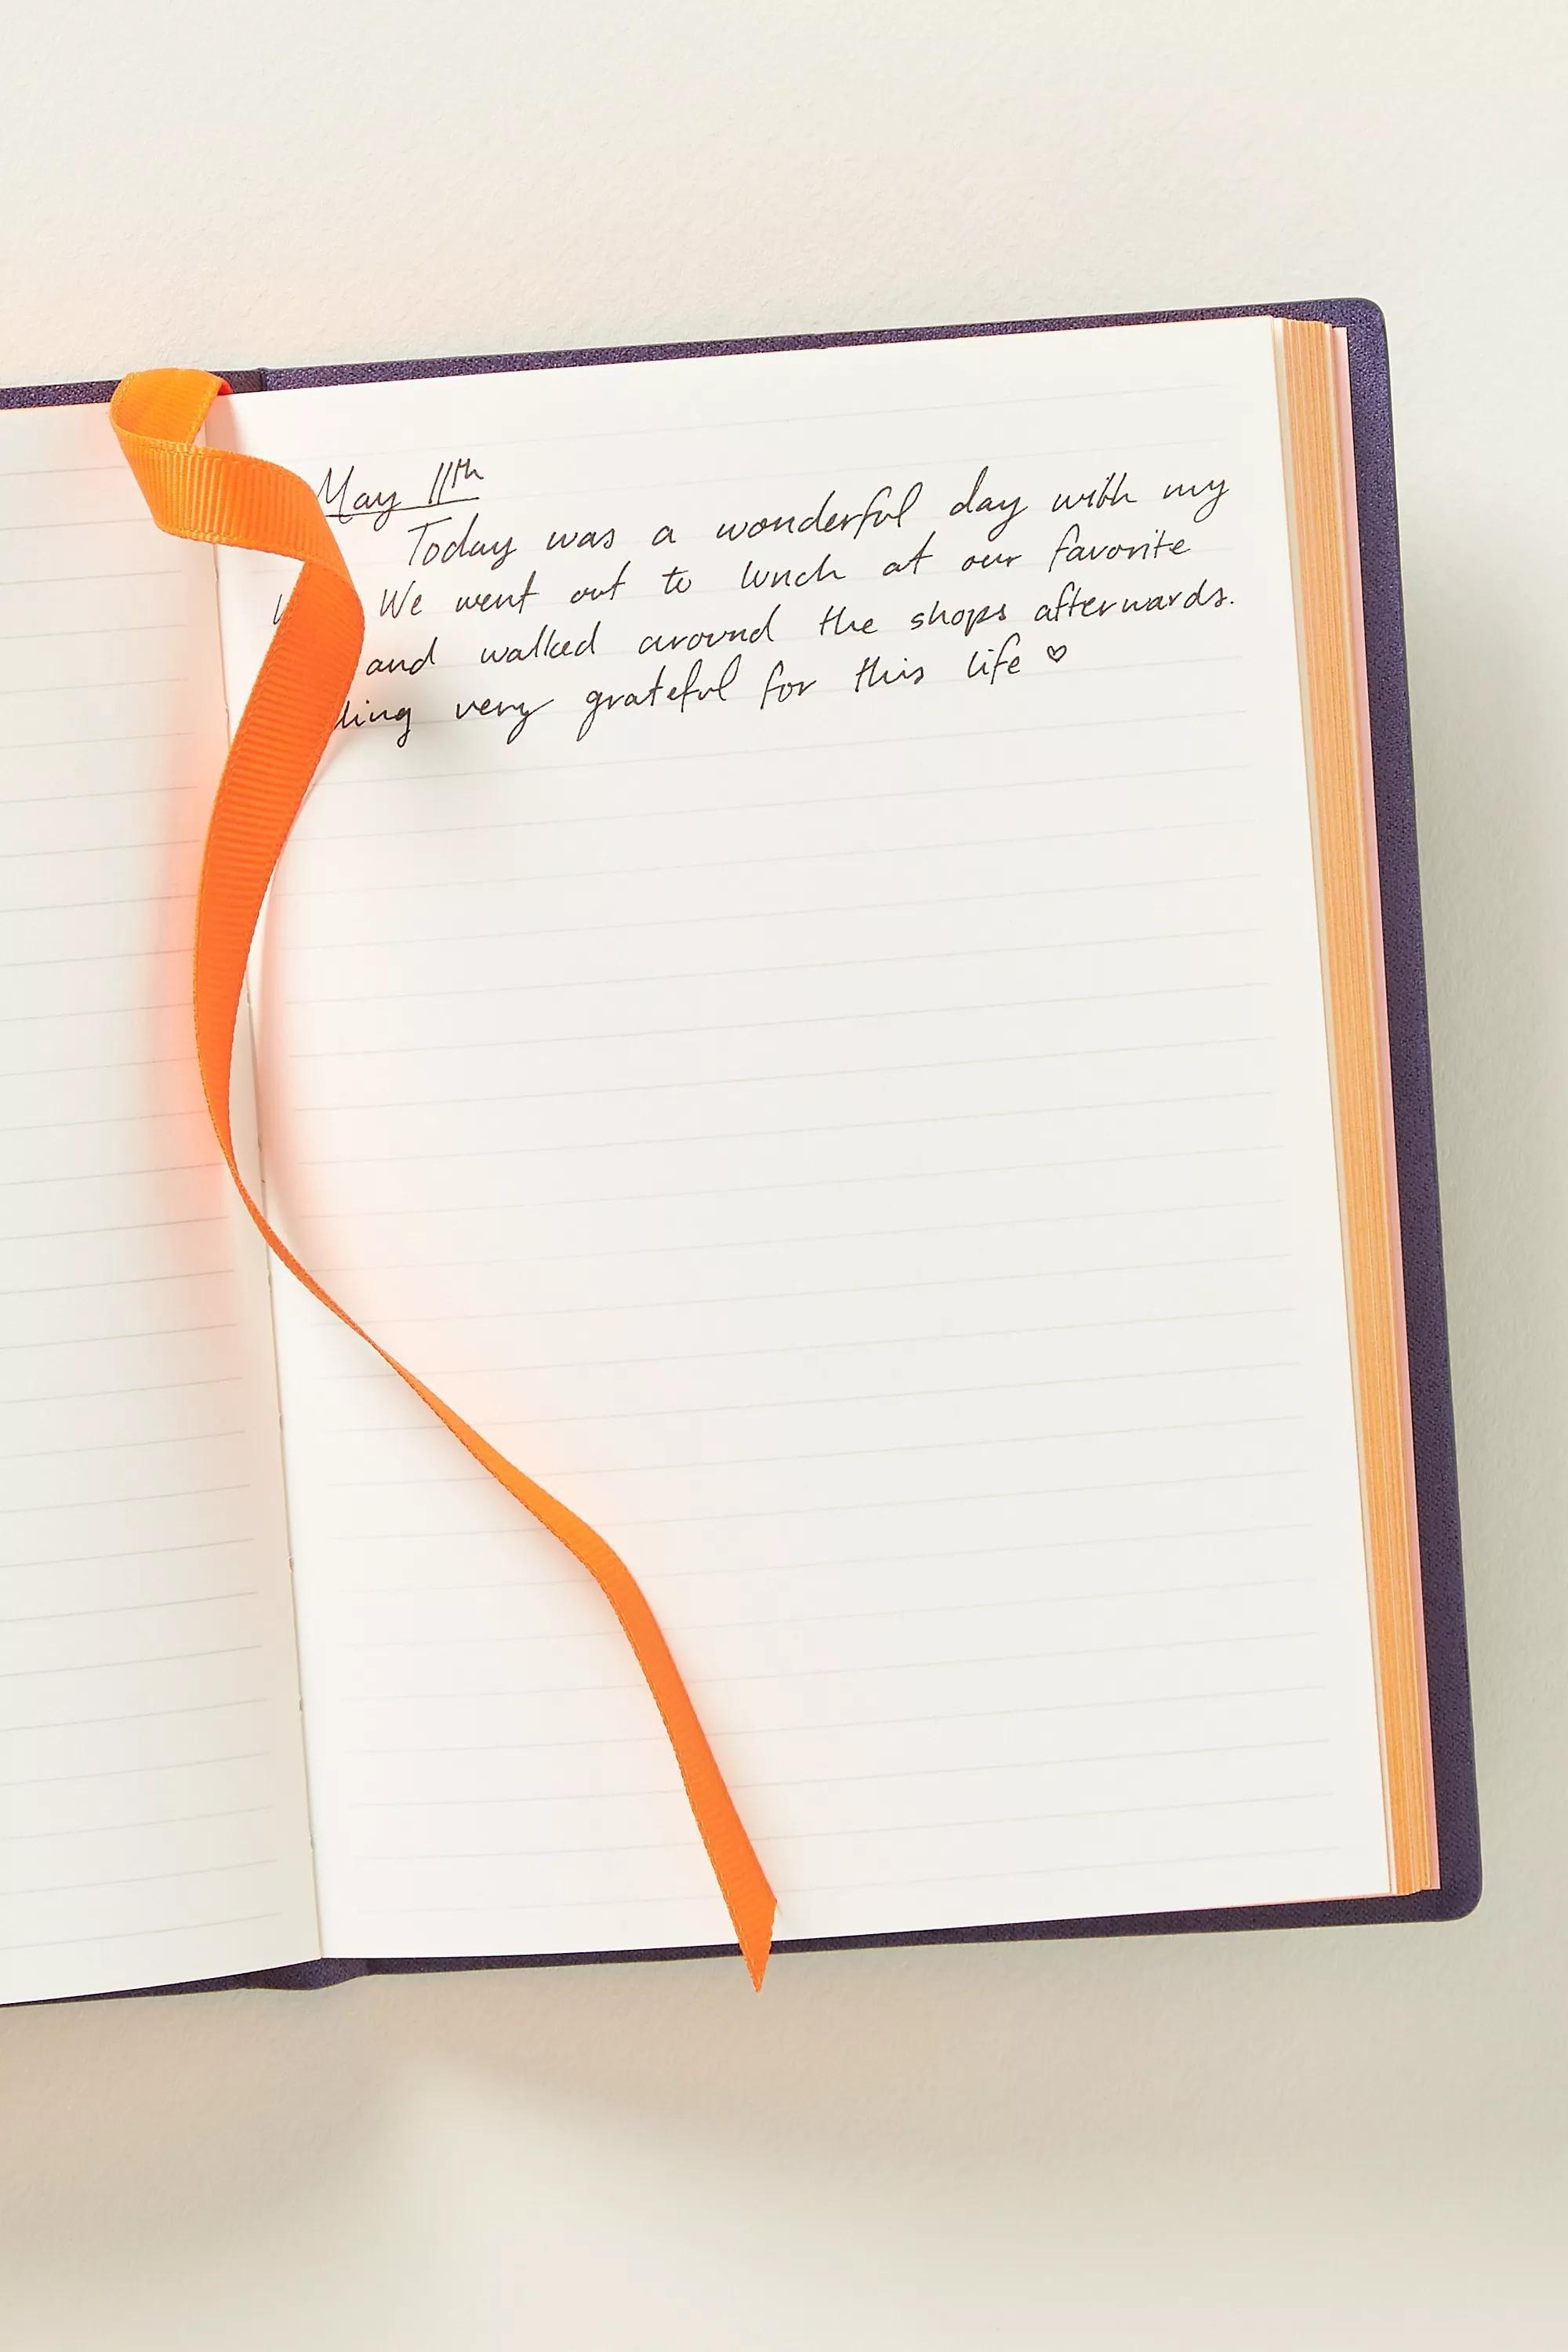 May 11th
Today was a wonderful day with my
We went out to lunch at our favorite
and walked around the shops afterwards.
very grateful for this life ♡